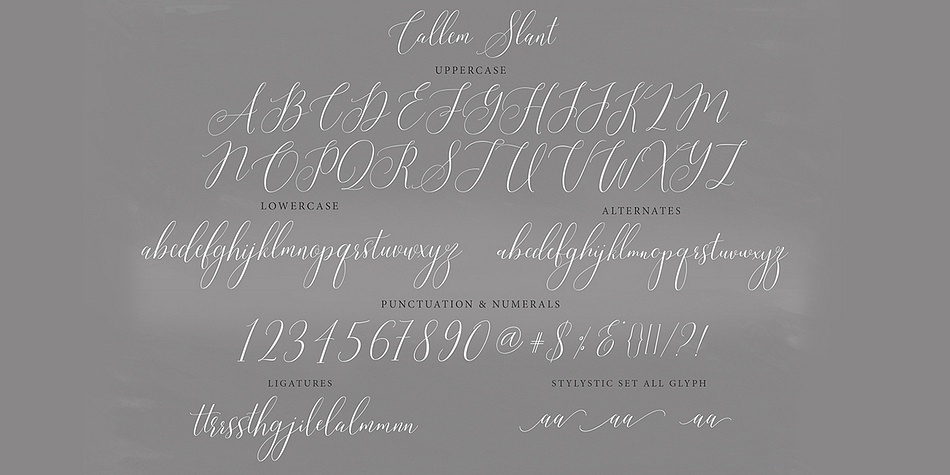 Callem Slant
UPPERCASE
ABCDEFGHIJKLM
NOPQRSTUVWXYZ
LOWERCASE
ALTERNATES
abcdefghijklmnopqrstuvwxyz
abcdefghijklmnopqrstuvwxyz
PUNCTUATION & NUMERALS
1234567890@#$%&{}||/?!
LIGATURES
STYLYSTIC SET ALL GLYPH
ttrrssthgjilelalmmnn
aa aa aa